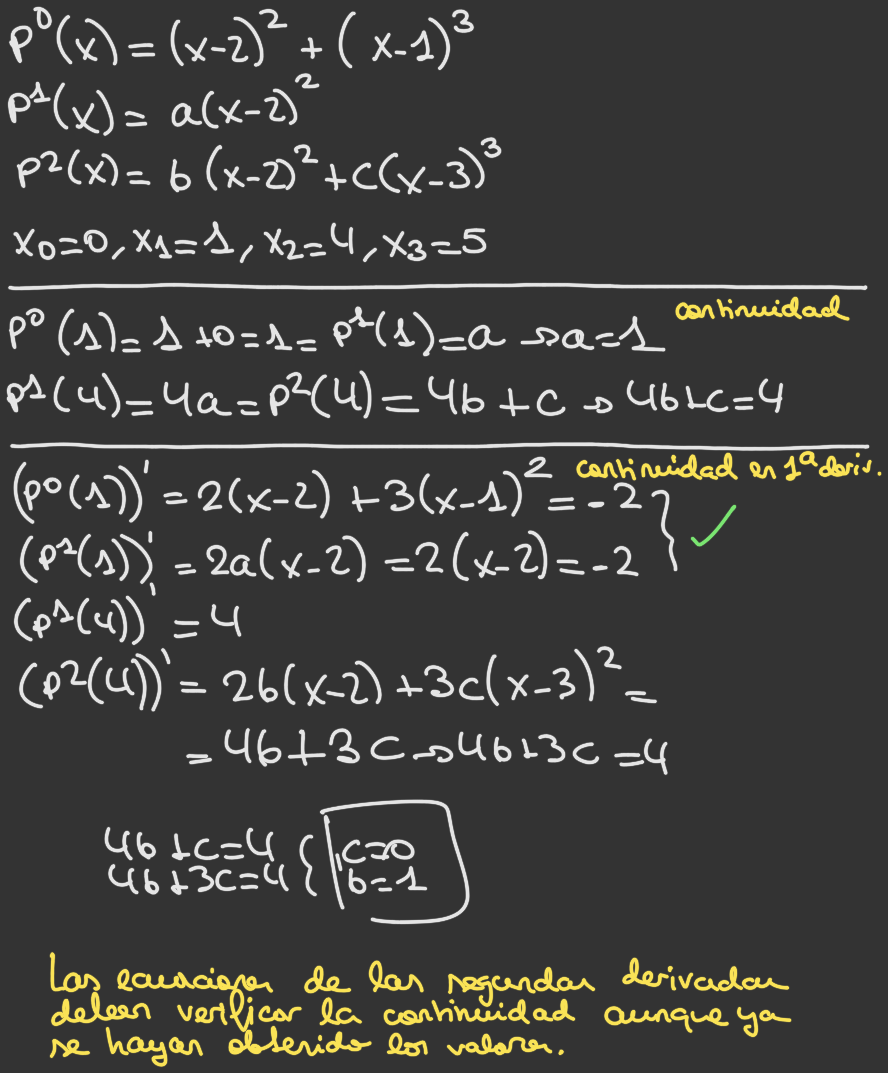 P⁰(x) = (x-2)² + (x-1)³
P¹(x) = a(x-2)²
P²(x) = b(x-2)² + c(x-3)³
x₀=0, x₁=1, x₂=4, x₃=5
continuidad
P⁰(1) = 1+0=1= P¹(1)=a → a=1
P¹(4)=4a=P²(4)=4b+c → 4b+c=4
continuidad en 1ª deriv.
(P⁰(1))' = 2(x-2) + 3(x-1)² = -2 } ✓
(P¹(1))' = 2a(x-2) = 2(x-2) = -2
(P¹(4))' = 4
(P²(4))' = 2b(x-2) + 3c(x-3)² =
= 4b+3c → 4b+3c=4
4b+c=4 { c=0
4b+3c=4 { b=1
Las ecuaciones de las segundas derivadas
deben verificar la continuidad aunque ya
se hayan obtenido los valores.